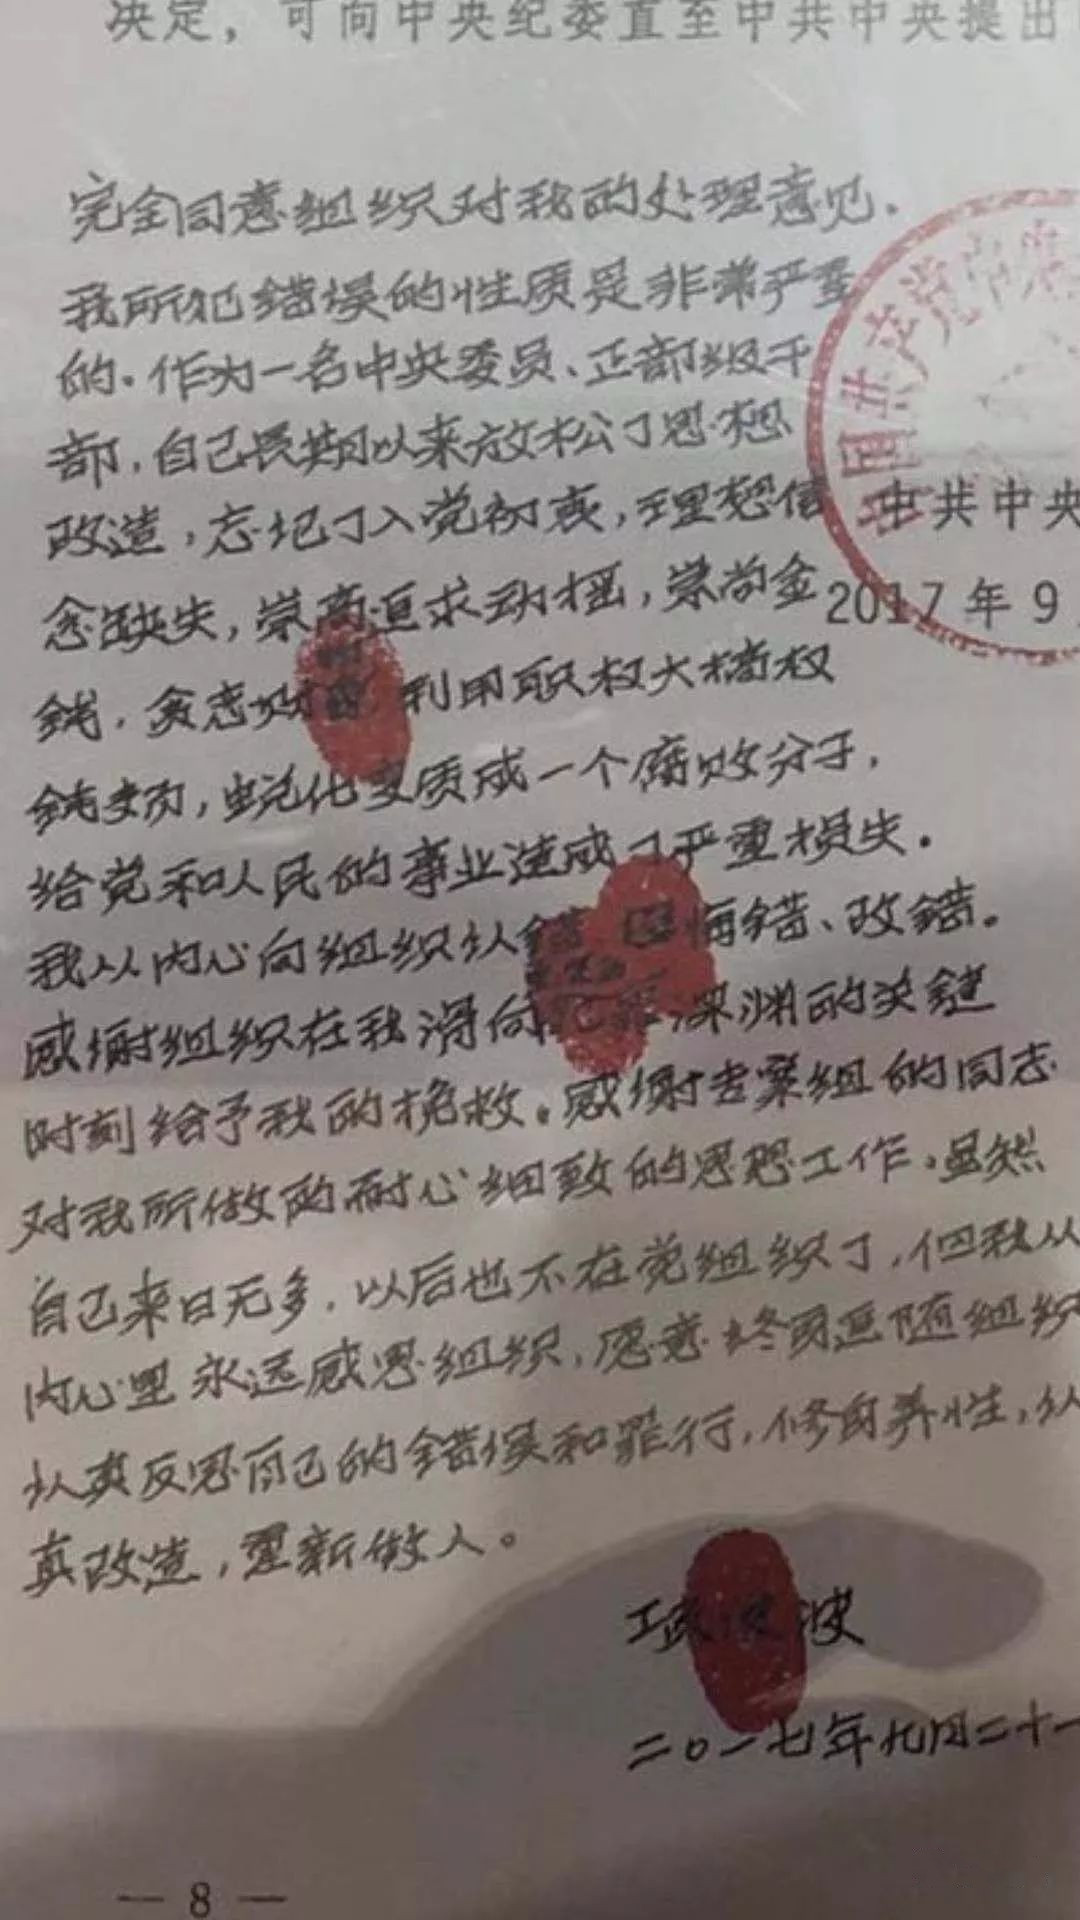 决定，可向中央纪委直至中共中央提出
完全同意组织对我的处理意见.
我所犯错误的性质是非常严重
的.作为一名中央委员、正部级干
部,自己长期以来放松了思想
改造,忘记了入党初衷,理想信
中共中央
念缺失,崇高追求动摇,崇尚金
2017年9
钱,贪恋财 利用职权大搞权
钱交易,蜕化变质成一个腐败分子,
给党和人民的事业造成了严重损失.
我从内心向组织认错 悔错、改错。
感谢组织在我滑向 深渊的关键
时刻给予我的挽救。感谢专案组的同志
对我所做的耐心细致的思想工作.虽然
自己来日无多,以后也不在党组织了,但我从
内心里永远感恩组织,愿意终身追随组织
认真反思自己的错误和罪行,修身养性,认
真改造,重新做人。
项 波
二〇一七年九月二十一
— 8 —
中国共产党